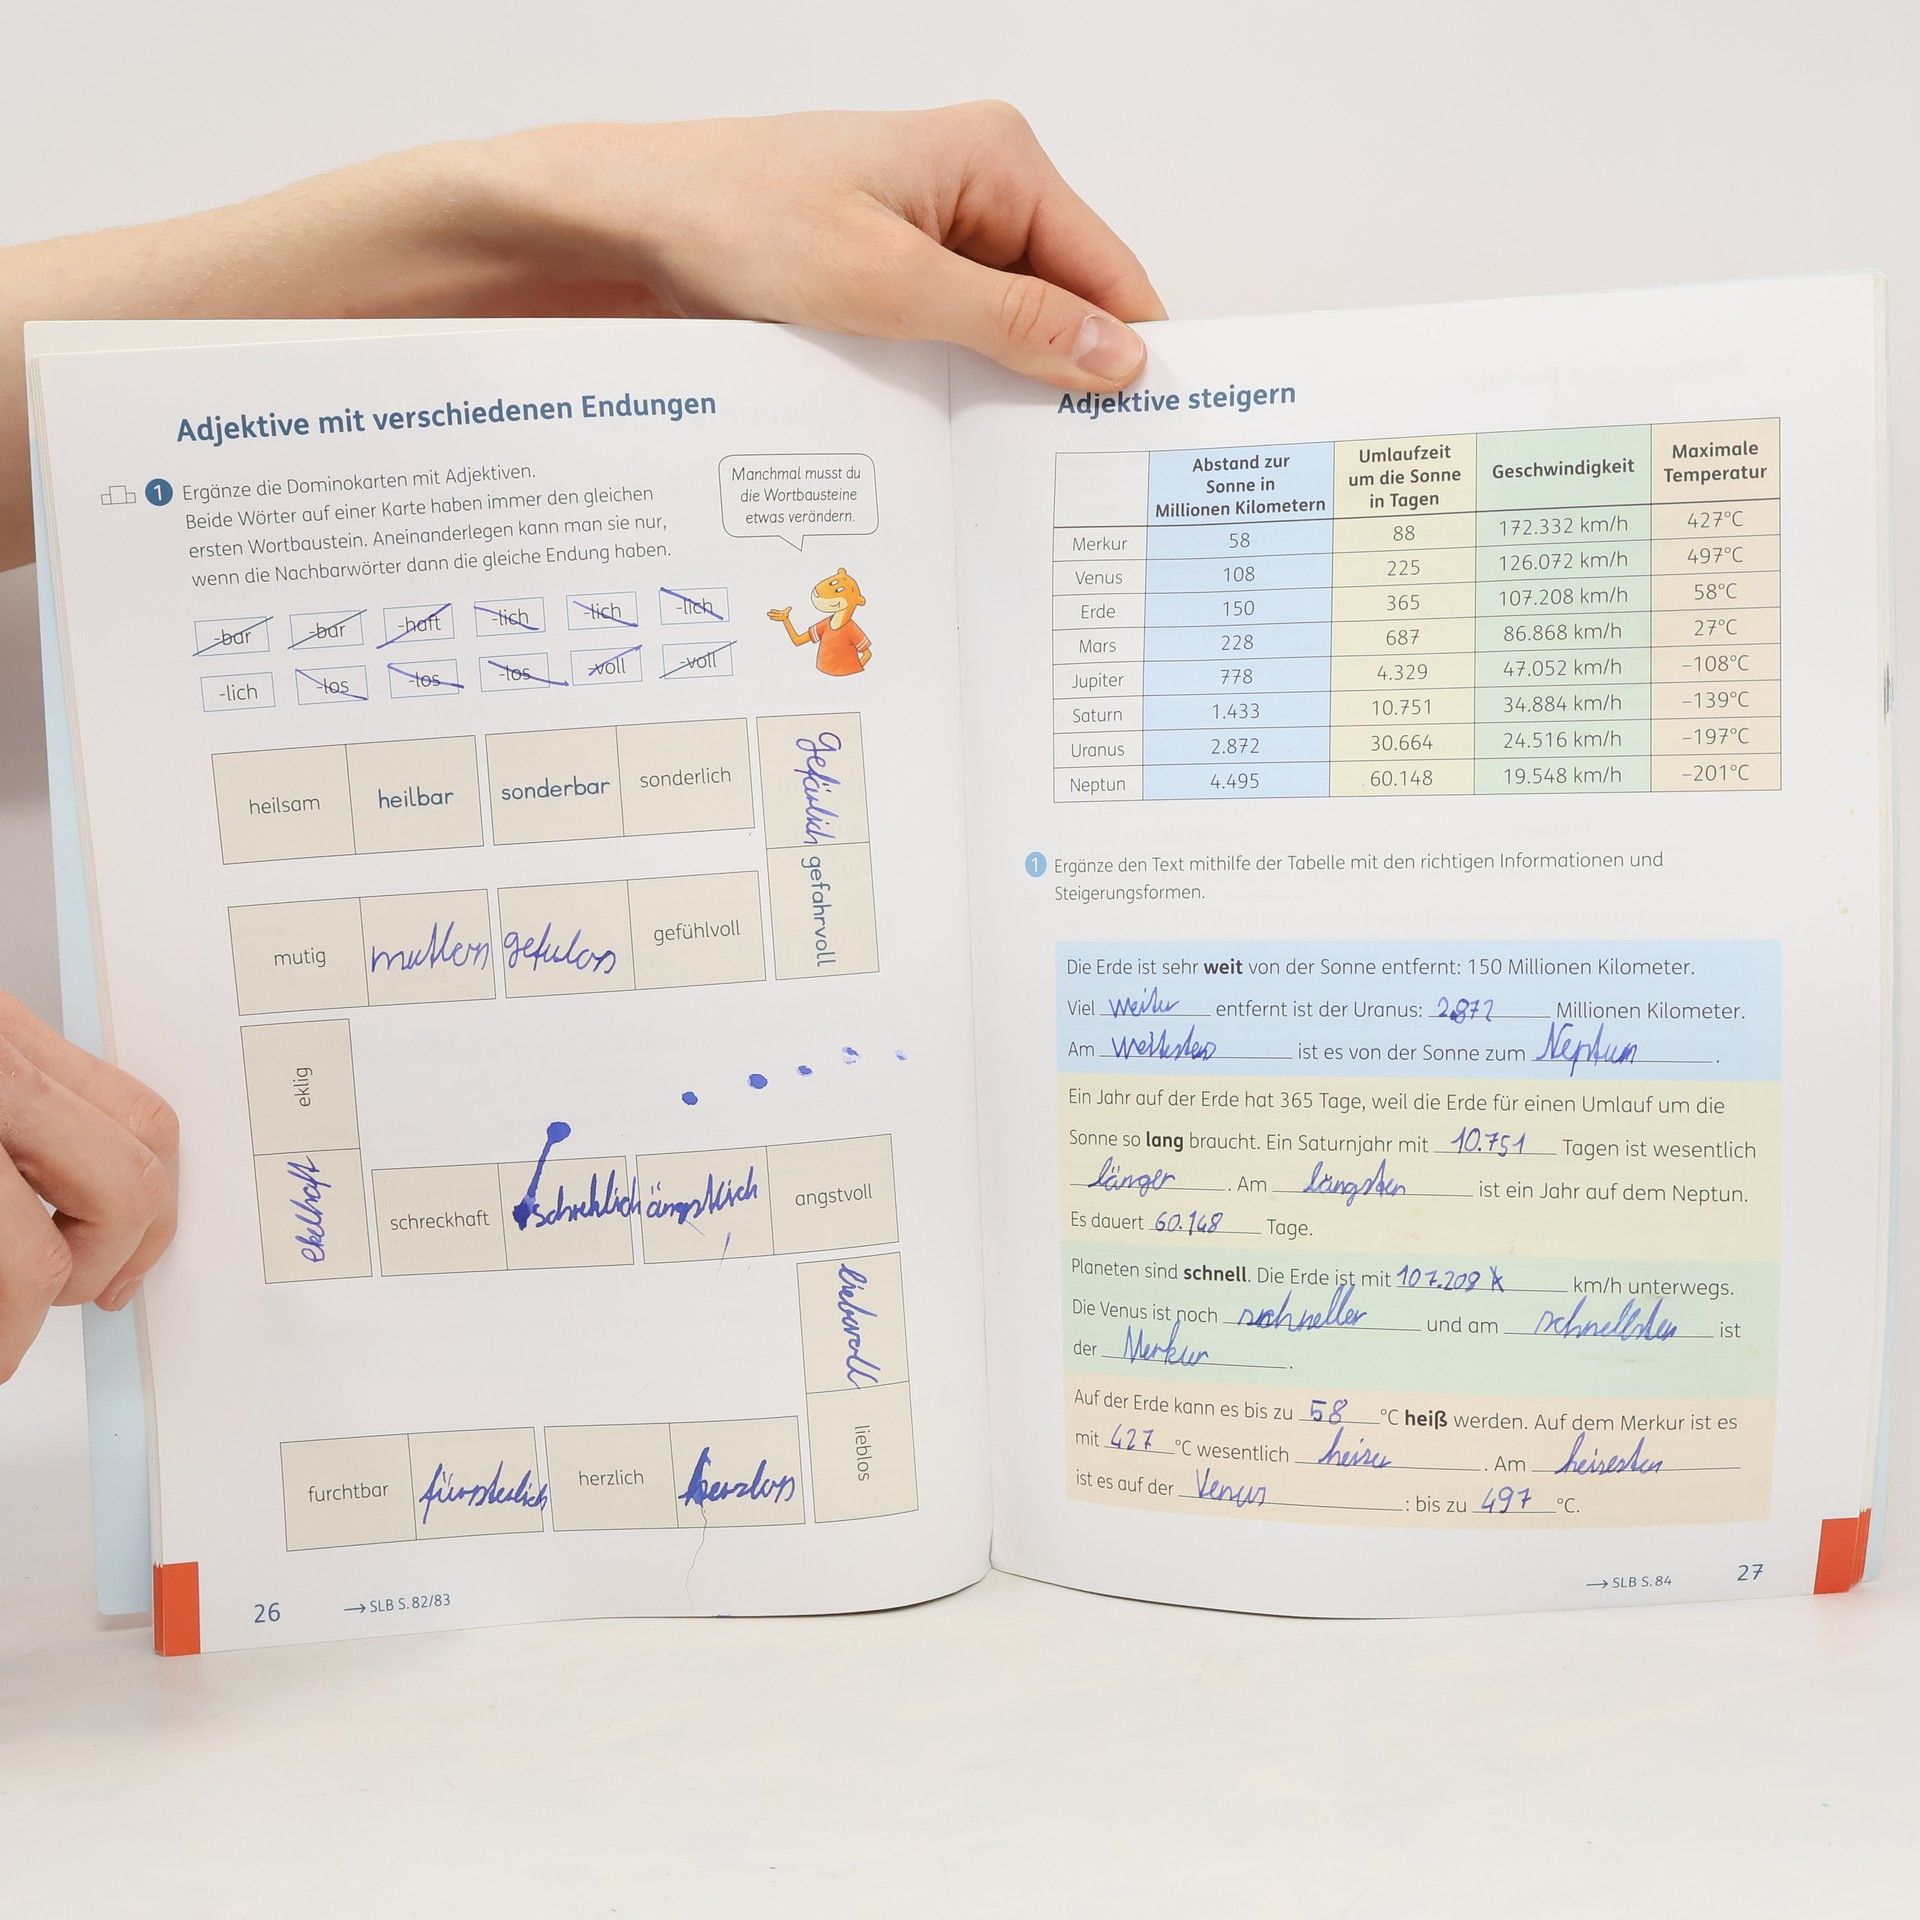 Adjektive mit verschiedenen Endungen
1 Ergänze die Dominokarten mit Adjektiven.
Beide Wörter auf einer Karte haben immer den gleichen
ersten Wortbaustein. Aneinanderlegen kann man sie nur,
wenn die Nachbarwörter dann die gleiche Endung haben.
Manchmal musst du
die Wortbausteine
etwas verändern.
-bar -bar -haft -lich -lich -lich
-lich -los -los -los -voll -voll
heilsam heilbar sonderbar sonderlich
Gefärlich gefahrvoll
mutig mutlos gefulos gefühlvoll
eklig
ekelhaft
schreckhaft schreklich ängstlich angstvoll
liebevoll
lieblos
furchtbar herzlich herzlos
26 → SLB S. 82/83
Adjektive steigern
Abstand zur Sonne in Millionen Kilometern Umlaufzeit um die Sonne in Tagen Geschwindigkeit Maximale Temperatur
Merkur 58 88 172.332 km/h 427°C
Venus 108 225 126.072 km/h 497°C
Erde 150 365 107.208 km/h 58°C
Mars 228 687 86.868 km/h 27°C
Jupiter 778 4.329 47.052 km/h –108°C
Saturn 1.433 10.751 34.884 km/h –139°C
Uranus 2.872 30.664 24.516 km/h –197°C
Neptun 4.495 60.148 19.548 km/h –201°C
1 Ergänze den Text mithilfe der Tabelle mit den richtigen Informationen und
Steigerungsformen.
Die Erde ist sehr weit von der Sonne entfernt: 150 Millionen Kilometer.
Viel weiter entfernt ist der Uranus: 2.872 Millionen Kilometer.
Am weitesten ist es von der Sonne zum Neptun.
Ein Jahr auf der Erde hat 365 Tage, weil die Erde für einen Umlauf um die
Sonne so lang braucht. Ein Saturnjahr mit 10.751 Tagen ist wesentlich
länger. Am längsten ist ein Jahr auf dem Neptun.
Es dauert 60.148 Tage.
Planeten sind schnell. Die Erde ist mit 107.208 km/h unterwegs.
Die Venus ist noch schneller und am schnellsten ist
der Merkur.
Auf der Erde kann es bis zu 58 °C heiß werden. Auf dem Merkur ist es
mit 427 °C wesentlich heiser. Am heisesten
ist es auf der Venus: bis zu 497 °C.
→ SLB S. 84 27